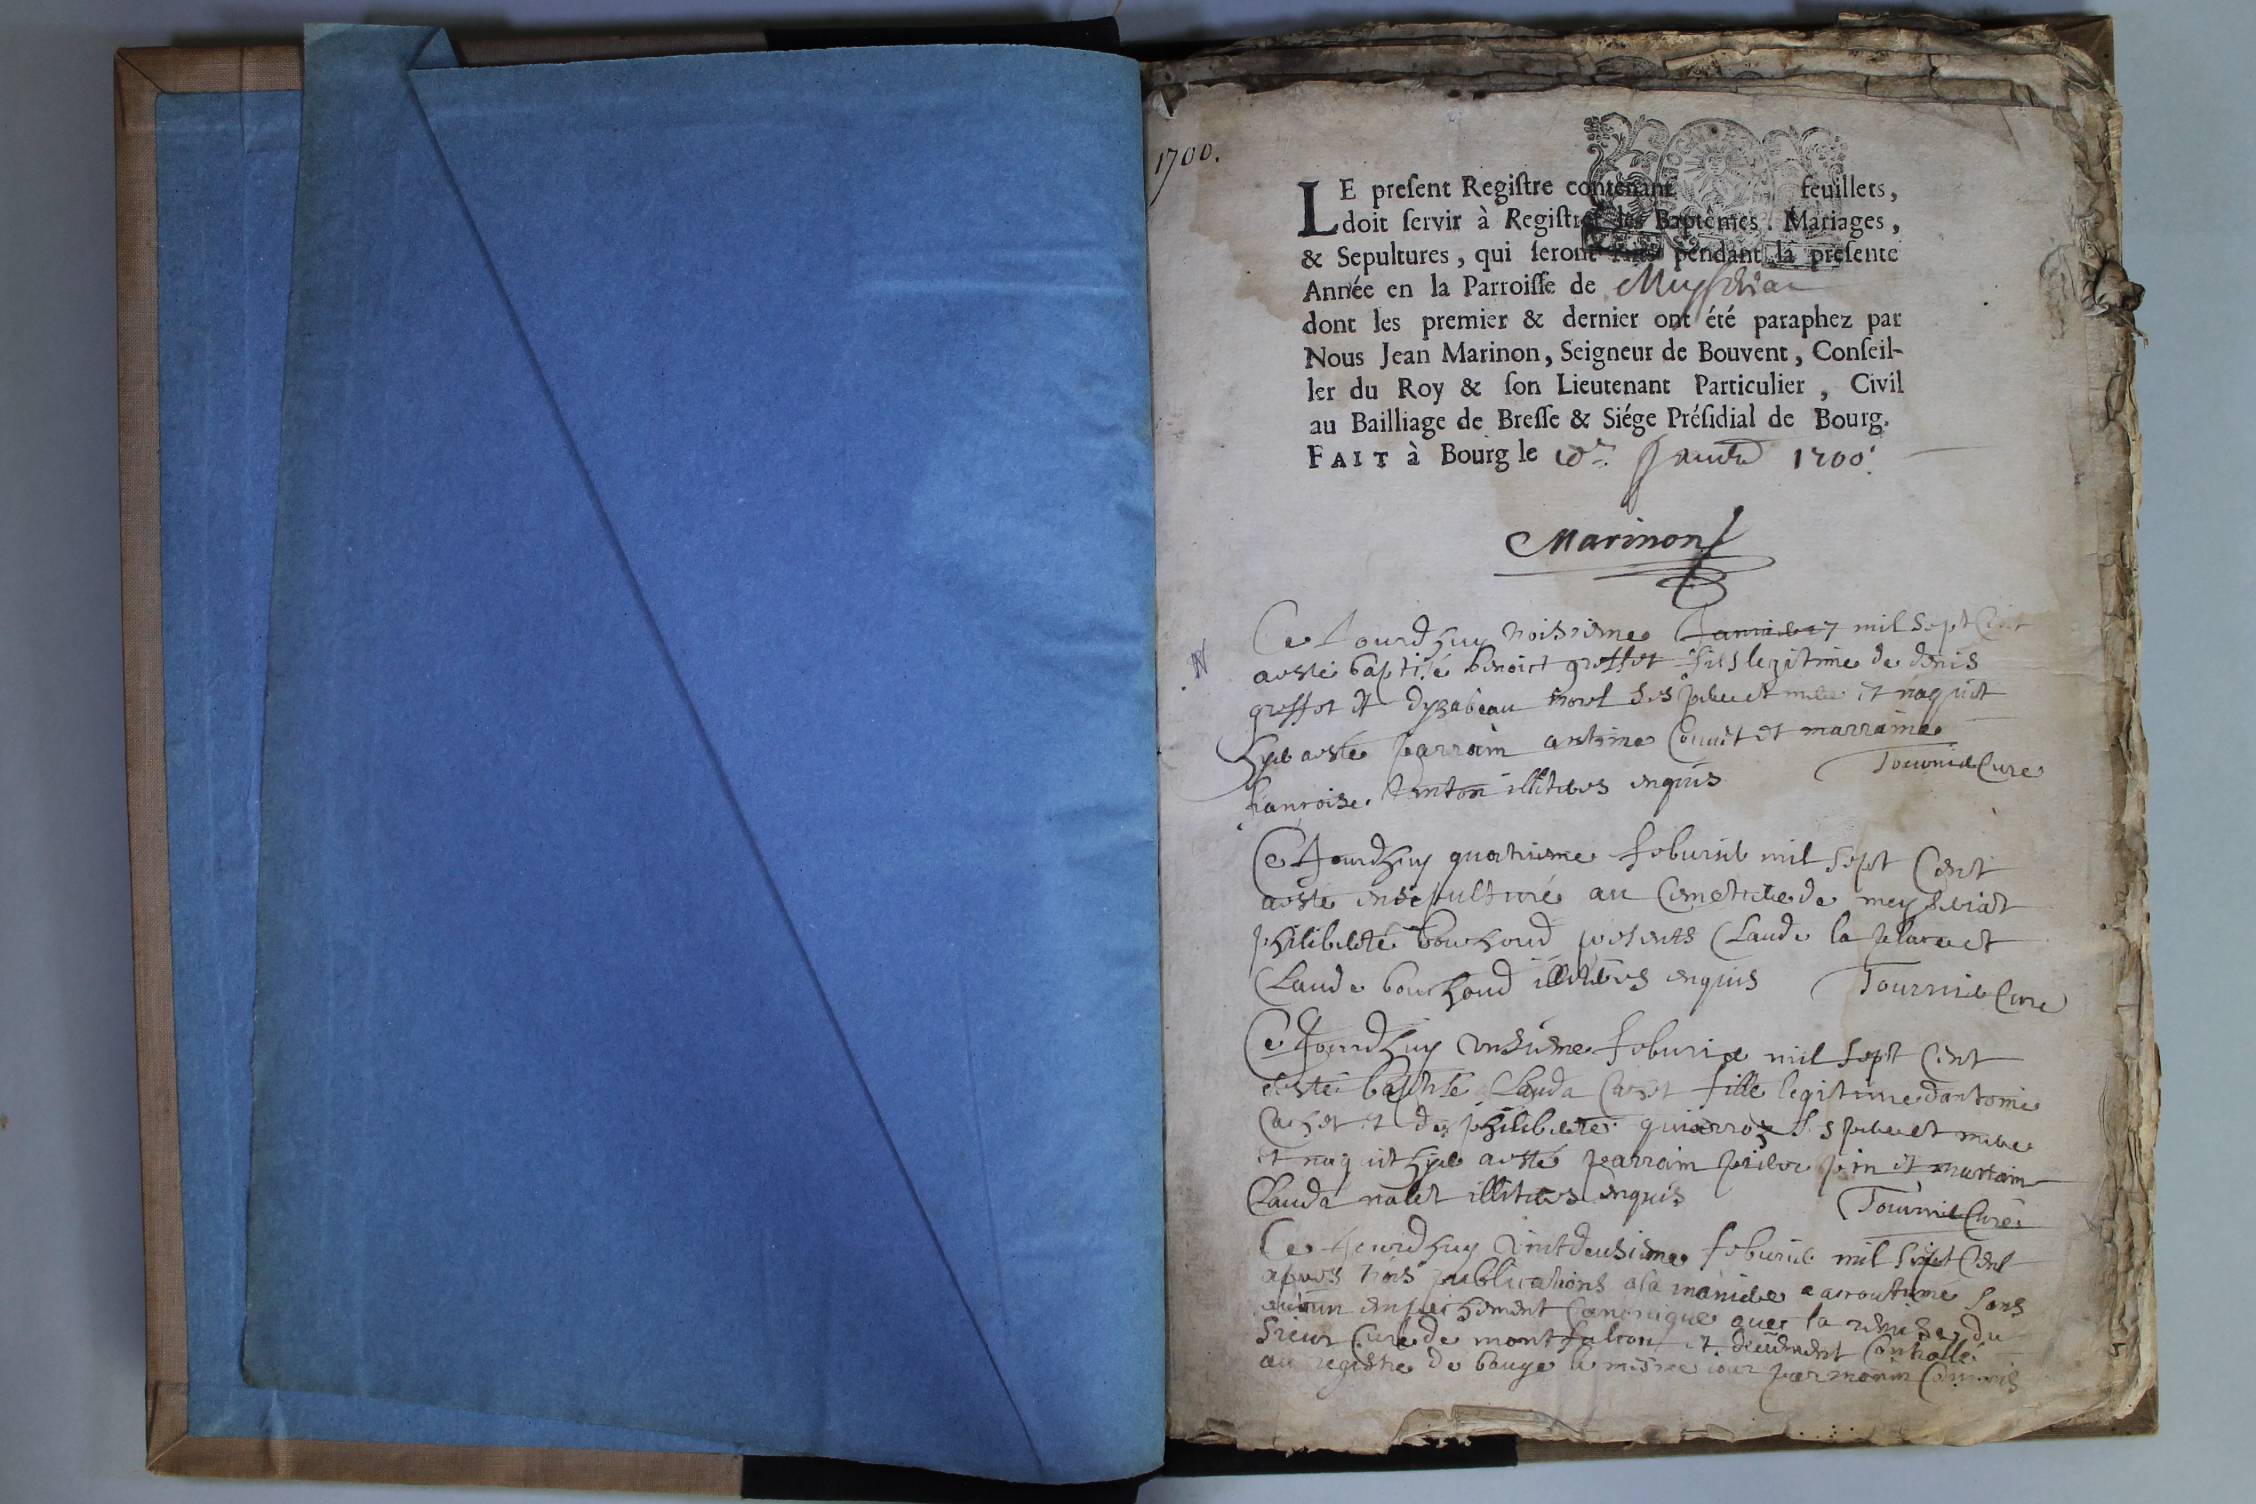 1700.
LE preſent Regiſtre contenant feuillets,
doit ſervir à Regiſtrer les Baptêmes, Mariages,
& Sepultures, qui ſeront faits pendant la preſente
Année en la Parroiſſe de
dont les premier & dernier ont été paraphez par
Nous Jean Marinon, Seigneur de Bouvent, Conſeil-
ler du Roy & ſon Lieutenant Particulier, Civil
au Bailliage de Breſſe & Siége Préſidial de Bourg.
FAIT à Bourg le 1700.
Marinon
Ce Jourdhuy troisiesme mil sept Cent
a esté baptisé benoict fils legitime de denis
et dyzabeau ses pere et mere et naquit
hyer a esté parrain antoine et marraine
francoise illiteres enquis Tournier Curé
Ce Jourdhuy quatriesme feburier mil sept Cent
a esté ensepulturé au Cimetiere de meysseriat
philiberte bouchoud presents Claude la place et
Claude bouchoud illiteres enquis Tournier Curé
Ce Jourdhuy onziesme feburier mil sept Cent
a esté baptisé Clauda fille legitime dantoine
et de philiberte ses pere et mere
et naquit hyer a esté parrain pin et marraine
Clauda illiteres enquis Tournier Curé
Ce Jourdhuy vint deusiesme feburier mil sept Cent
apres trois publications a la maniere accoutumé sans
aucun empeichement Canonique avec la remise du
sieur Curé de montfalcon et deuement Controllé
au registre de bauge le mesme iour par monin Commis